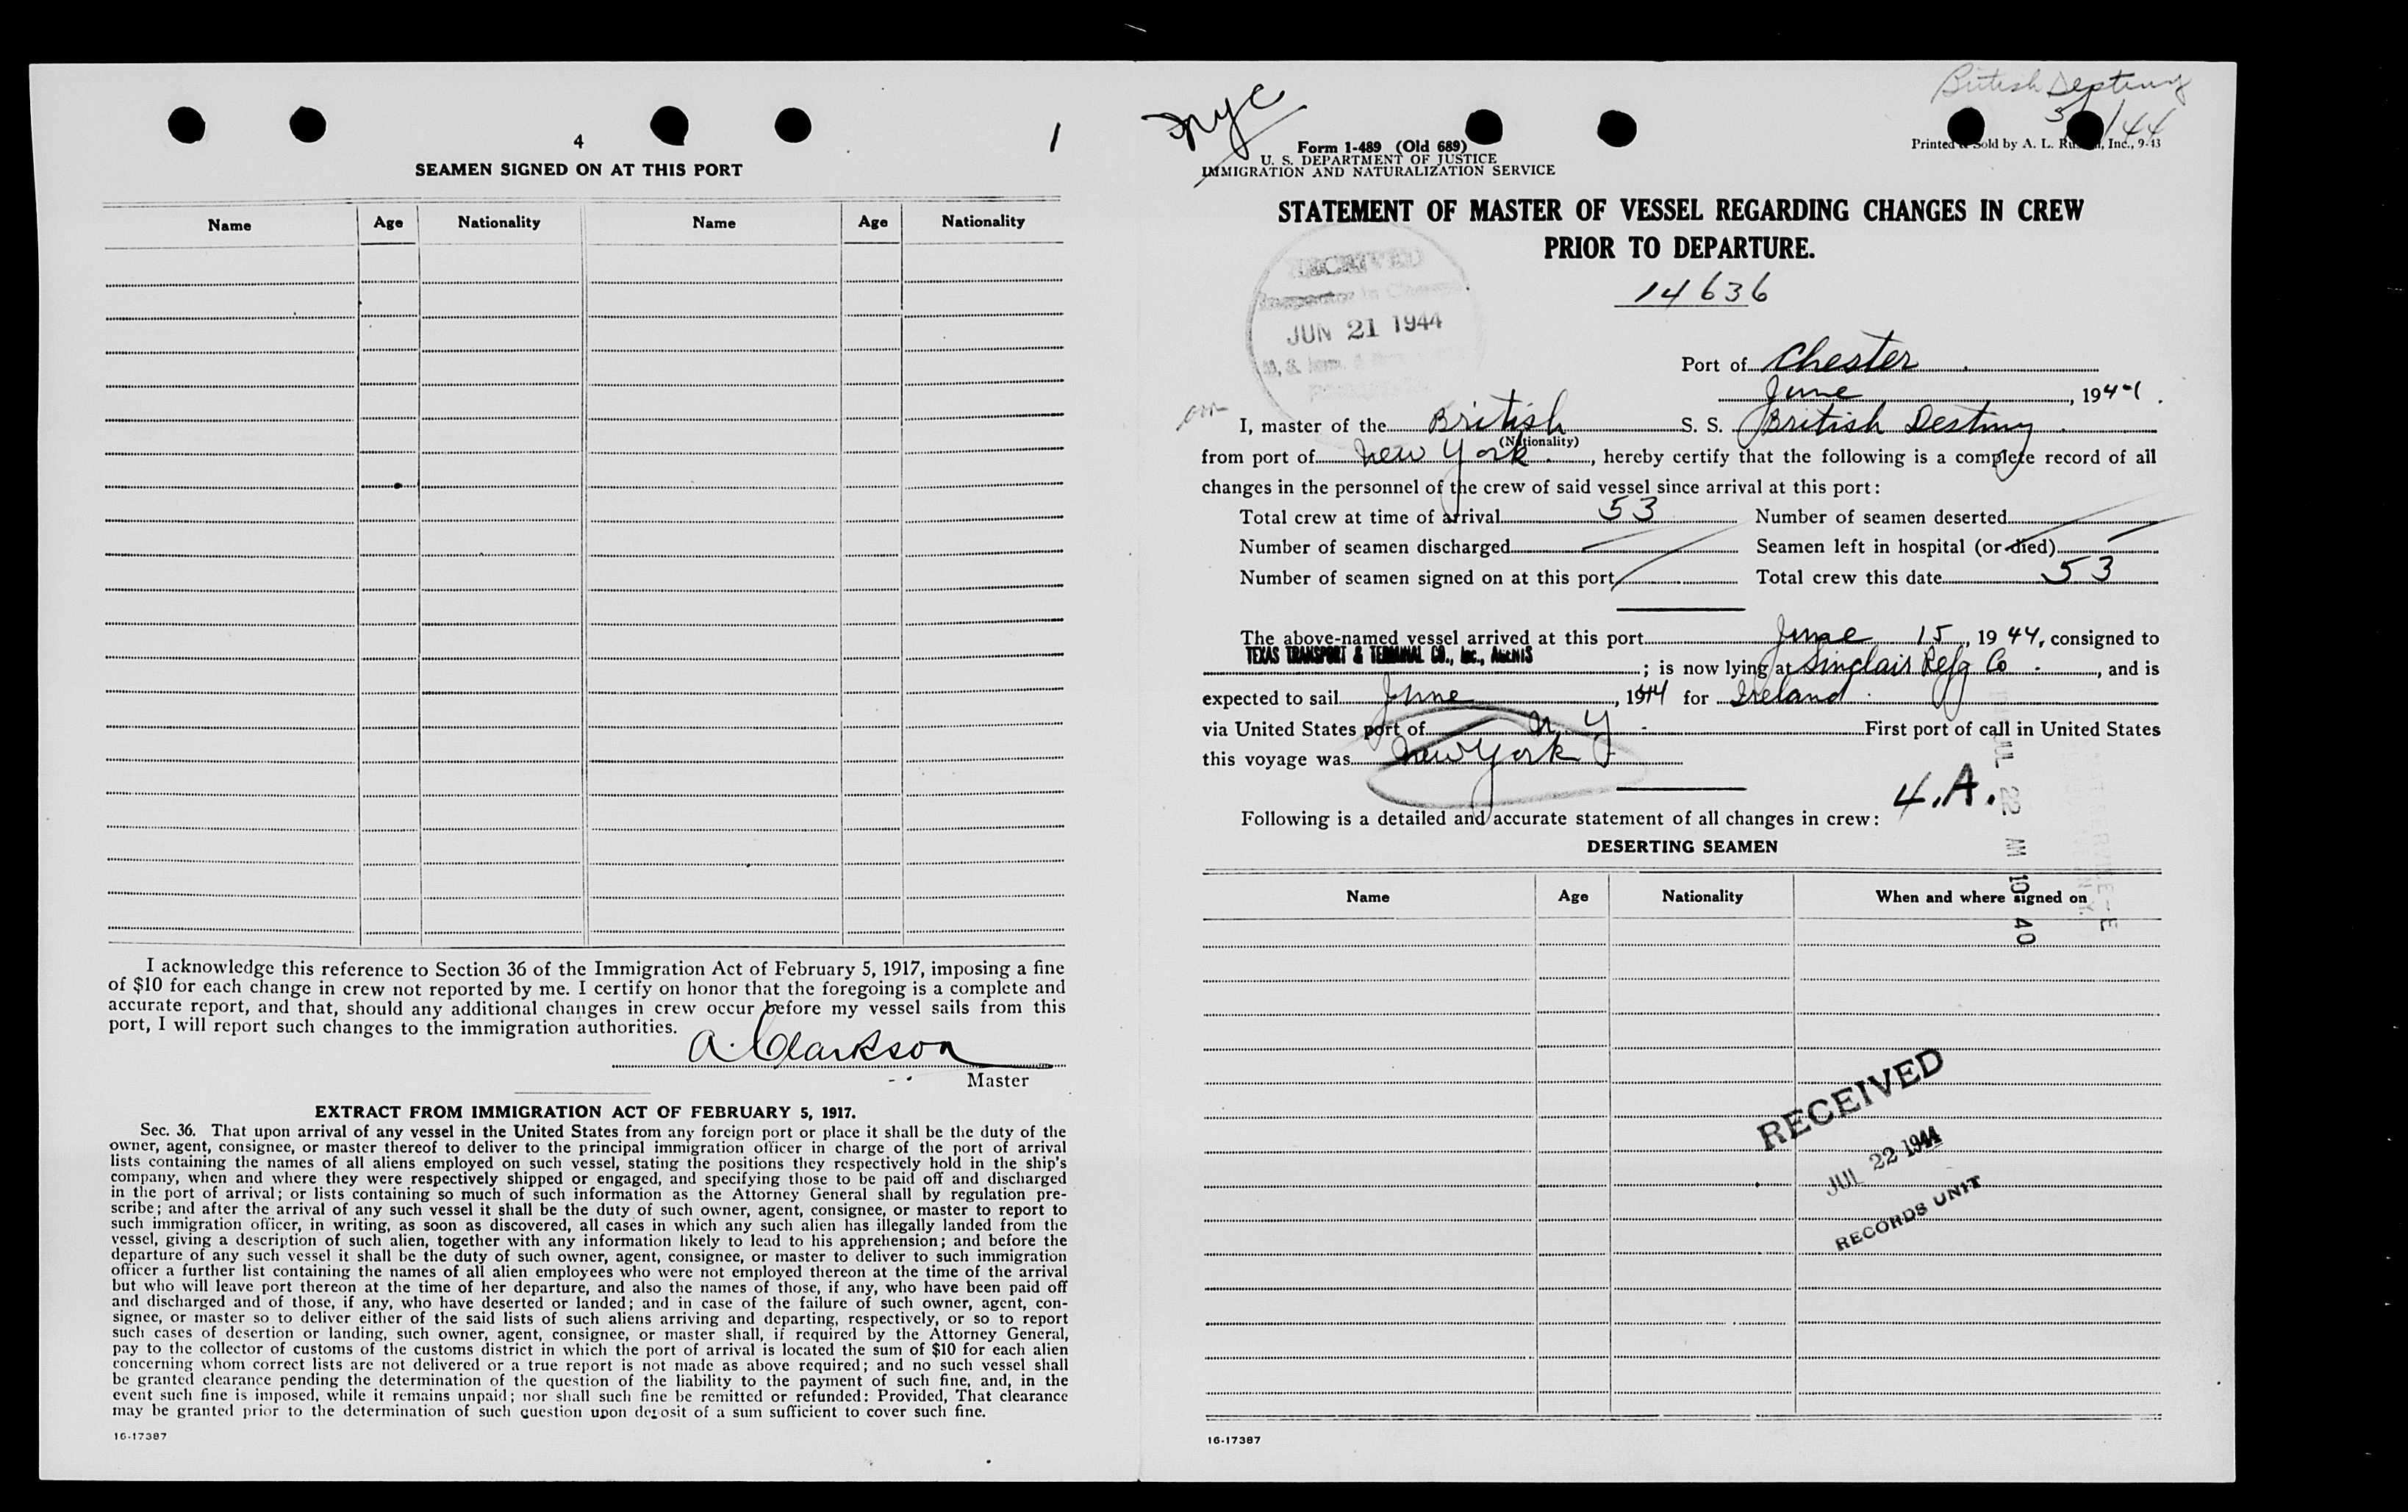 4
1
SEAMEN SIGNED ON AT THIS PORT
Name Age Nationality Name Age Nationality
I acknowledge this reference to Section 36 of the Immigration Act of February 5, 1917, imposing a fine
of $10 for each change in crew not reported by me. I certify on honor that the foregoing is a complete and
accurate report, and that, should any additional changes in crew occur before my vessel sails from this
port, I will report such changes to the immigration authorities.
A. Clarkson
Master
EXTRACT FROM IMMIGRATION ACT OF FEBRUARY 5, 1917.
Sec. 36. That upon arrival of any vessel in the United States from any foreign port or place it shall be the duty of the
owner, agent, consignee, or master thereof to deliver to the principal immigration officer in charge of the port of arrival
lists containing the names of all aliens employed on such vessel, stating the positions they respectively hold in the ship's
company, when and where they were respectively shipped or engaged, and specifying those to be paid off and discharged
in the port of arrival; or lists containing so much of such information as the Attorney General shall by regulation pre-
scribe; and after the arrival of any such vessel it shall be the duty of such owner, agent, consignee, or master to report to
such immigration officer, in writing, as soon as discovered, all cases in which any such alien has illegally landed from the
vessel, giving a description of such alien, together with any information likely to lead to his apprehension; and before the
departure of any such vessel it shall be the duty of such owner, agent, consignee, or master to deliver to such immigration
officer a further list containing the names of all alien employees who were not employed thereon at the time of the arrival
but who will leave port thereon at the time of her departure, and also the names of those, if any, who have been paid off
and discharged and of those, if any, who have deserted or landed; and in case of the failure of such owner, agent, con-
signee, or master so to deliver either of the said lists of such aliens arriving and departing, respectively, or so to report
such cases of desertion or landing, such owner, agent, consignee, or master shall, if required by the Attorney General,
pay to the collector of customs of the customs district in which the port of arrival is located the sum of $10 for each alien
concerning whom correct lists are not delivered or a true report is not made as above required; and no such vessel shall
be granted clearance pending the determination of the question of the liability to the payment of such fine, and, in the
event such fine is imposed, while it remains unpaid; nor shall such fine be remitted or refunded: Provided, That clearance
may be granted prior to the determination of such question upon deposit of a sum sufficient to cover such fine.
16-17387
nyc
British Destiny
/44
Form 1-489 (Old 689)
U. S. DEPARTMENT OF JUSTICE
IMMIGRATION AND NATURALIZATION SERVICE
Printed & Sold by A. L. Inc., 9-43
STATEMENT OF MASTER OF VESSEL REGARDING CHANGES IN CREW
PRIOR TO DEPARTURE.
14636
RECEIVED
Inspector in Charge
JUN 21 1944
Port of Chester
June, 1944.
I, master of the British S. S. British Destiny
(Nationality)
from port of New York, hereby certify that the following is a complete record of all
changes in the personnel of the crew of said vessel since arrival at this port:
Total crew at time of arrival 53 Number of seamen deserted
Number of seamen discharged Seamen left in hospital (or died)
Number of seamen signed on at this port Total crew this date 53
The above-named vessel arrived at this port June 15, 1944, consigned to
TEXAS TRANSPORT & TERMINAL CO., Inc., AGENTS
; is now lying at Sinclair Refg Co, and is
expected to sail June, 1944 for Ireland
via United States port of N. Y First port of call in United States
this voyage was New York
4.A.
Following is a detailed and accurate statement of all changes in crew:
JUL 22 AM 10 40
DESERTING SEAMEN
Name Age Nationality When and where signed on
RECEIVED
JUL 22 1944
RECORDS UNIT
16-17387